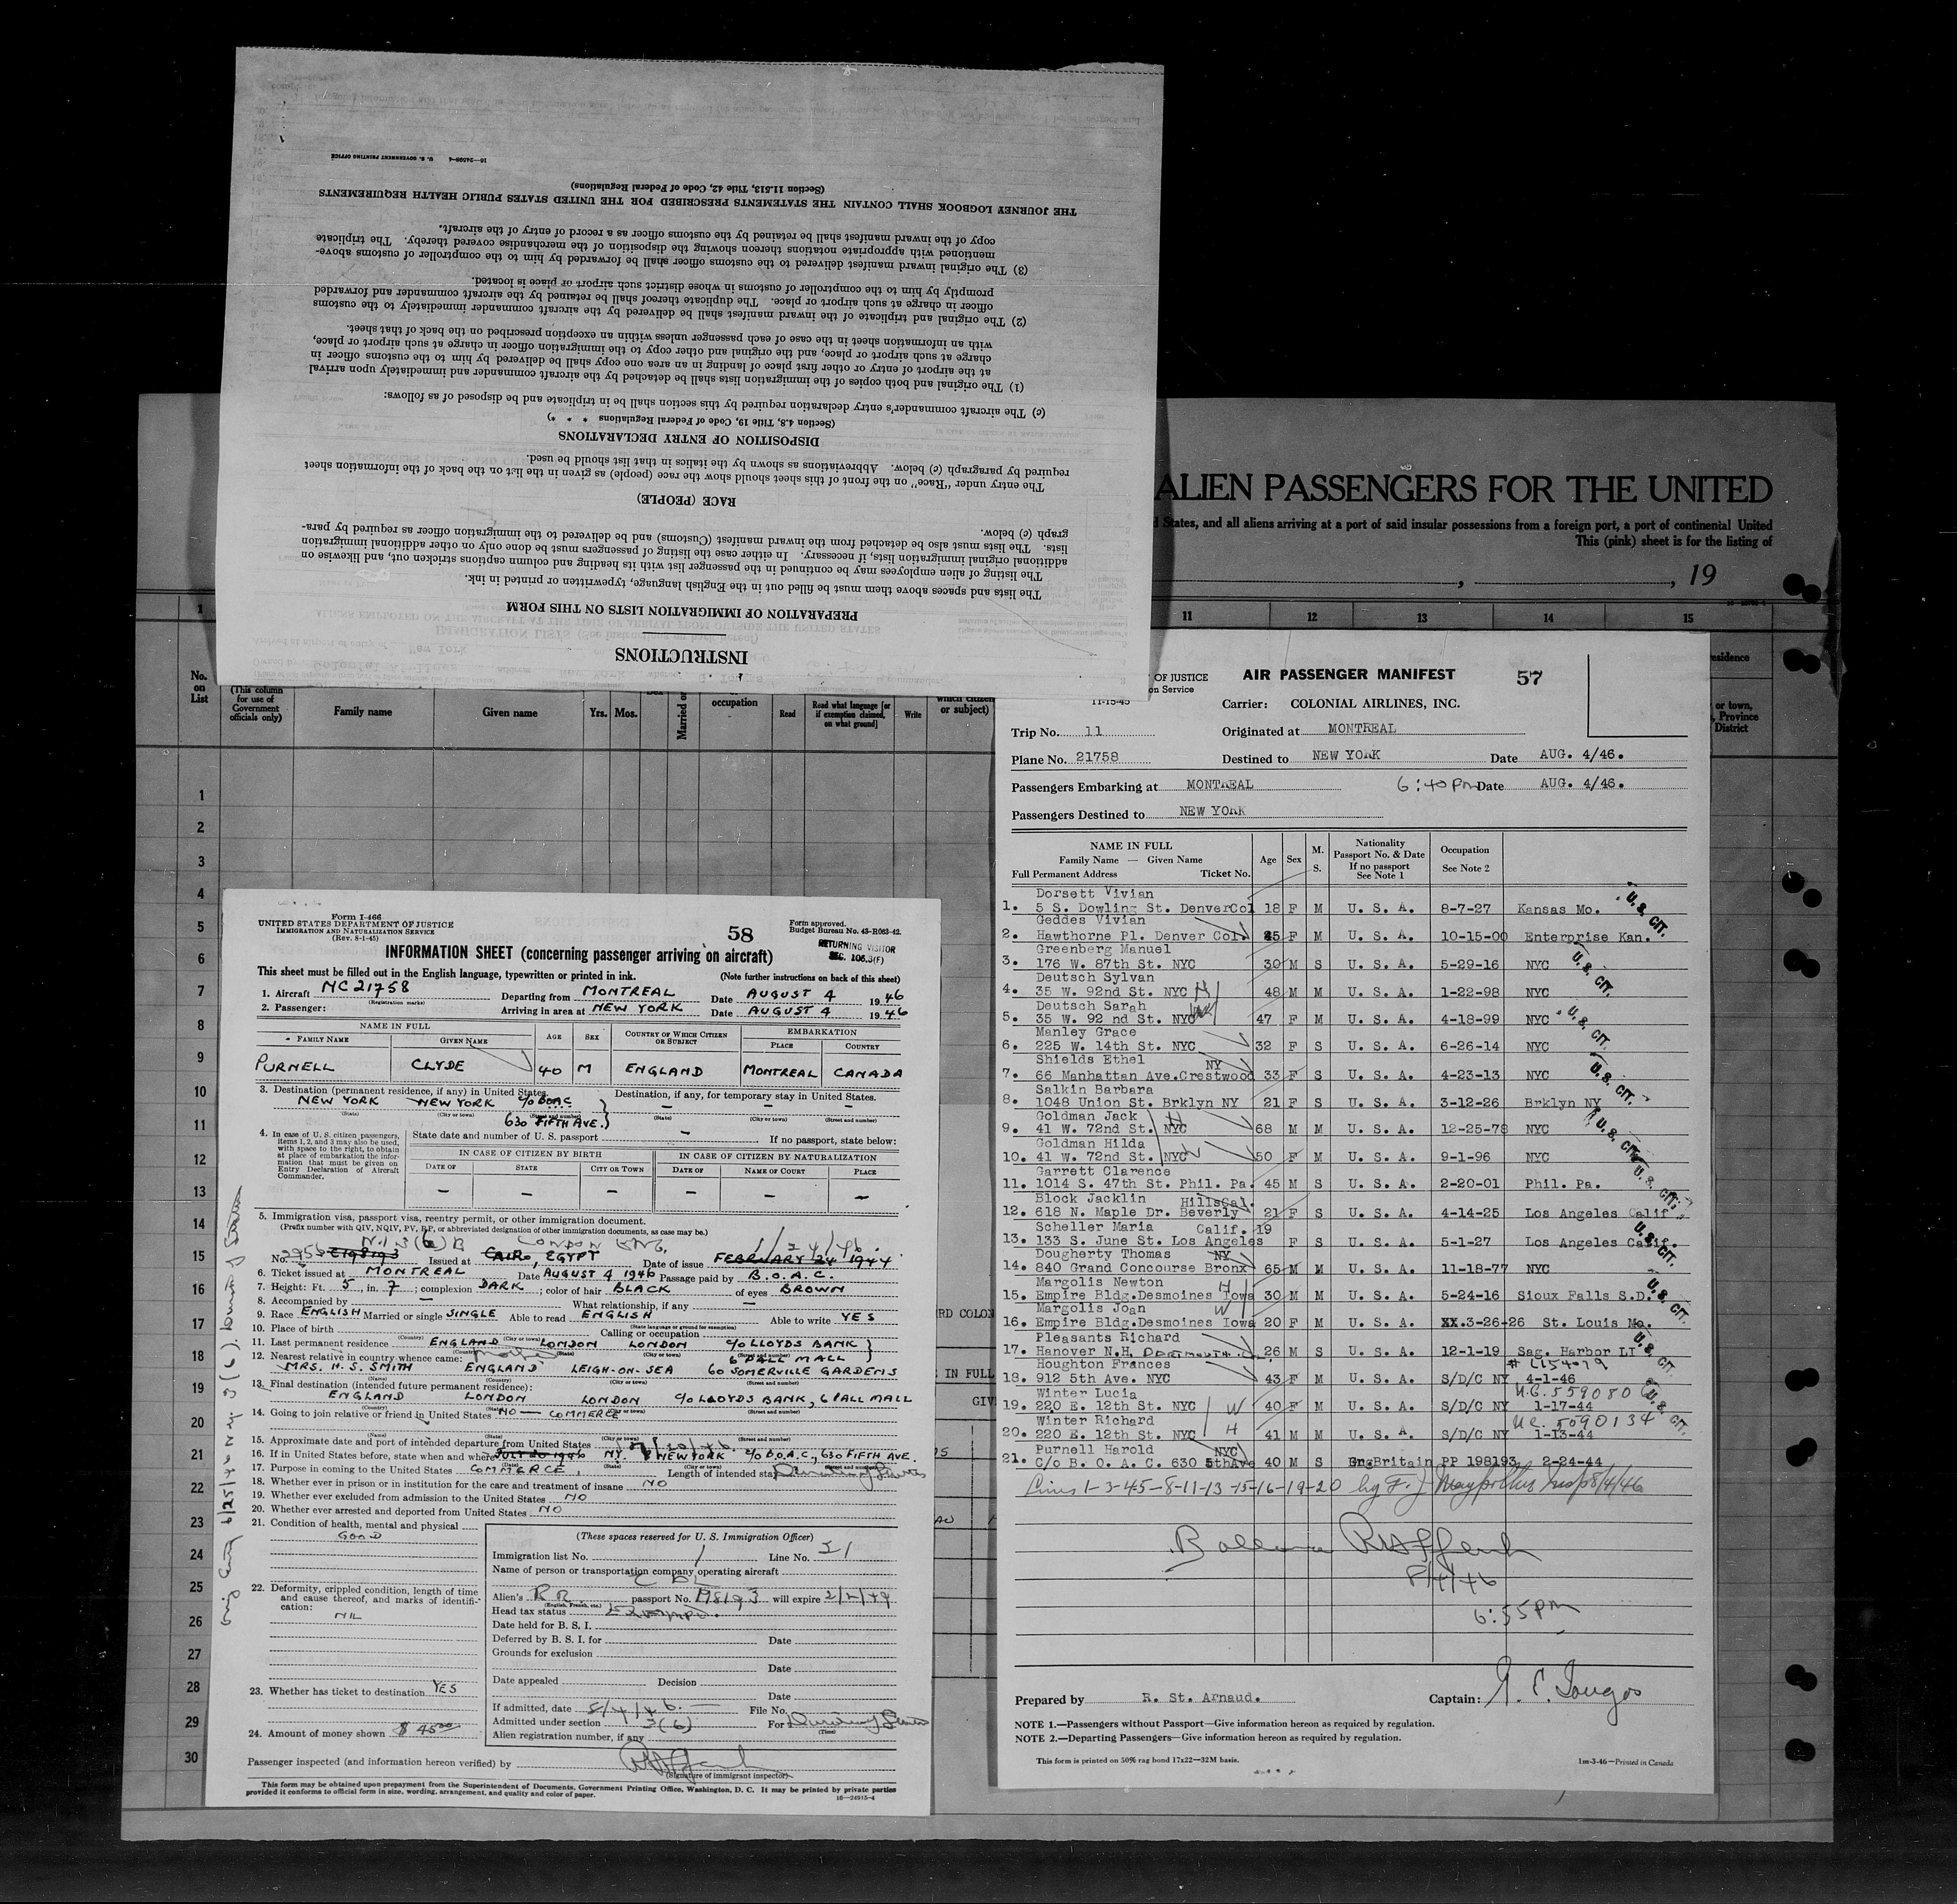 INSTRUCTIONS
PREPARATION OF IMMIGRATION LISTS ON THIS FORM
The lists and spaces above them must be filled out in the English language, typewritten or printed in ink.
The listing of alien employees may be continued in the passenger list with its heading and column captions stricken out, and likewise on
additional original immigration lists, if necessary. In either case the listing of passengers must be done only on other additional immigration
lists. The lists must also be detached from the inward manifest (Customs) and be delivered to the immigration officer as required by para-
graph (c) below.
RACE (PEOPLE)
The entry under "Race" on the front of this sheet should show the race (people) as given in the list on the back of the information sheet
required by paragraph (c) below. Abbreviations as shown by the italics in that list should be used.
DISPOSITION OF ENTRY DECLARATIONS
(Section 4.8, Title 19, Code of Federal Regulations * * *)
(c) The aircraft commander's entry declaration required by this section shall be in triplicate and be disposed of as follows:
(1) The original and both copies of the immigration lists shall be detached by the aircraft commander and immediately upon arrival
at the airport of entry or other first place of landing in an area one copy shall be delivered by him to the customs officer in
charge at such airport or place, and the original and other copy to the immigration officer in charge at such airport or place,
with an information sheet in the case of each passenger unless within an exception prescribed on the back of that sheet.
(2) The original and triplicate of the inward manifest shall be delivered by the aircraft commander immediately to the customs
officer in charge at such airport or place. The duplicate thereof shall be retained by the aircraft commander and forwarded
promptly by him to the comptroller of customs in whose district such airport or place is located.
(3) The original inward manifest delivered to the customs officer shall be forwarded by him to the comptroller of customs above-
mentioned with appropriate notations thereon showing the disposition of the merchandise covered thereby. The triplicate
copy of the inward manifest shall be retained by the customs officer as a record of entry of the aircraft.
THE JOURNEY LOGBOOK SHALL CONTAIN THE STATEMENTS PRESCRIBED FOR THE UNITED STATES PUBLIC HEALTH REQUIREMENTS
(Section 11.513, Title 42, Code of Federal Regulations)
16—24599-4 U. S. GOVERNMENT PRINTING OFFICE
ALIEN PASSENGERS FOR THE UNITED
States, and all aliens arriving at a port of said insular possessions from a foreign port, a port of continental United
This (pink) sheet is for the listing of
, 19
1 11 12 13 14 15
No. on List
(This column for use of Government officials only)
Family name Given name Yrs. Mos. Married or occupation Read Read what language [or if exemption claimed, on what ground] Write which citizen or subject)
residence
or town, Province District
1
2
3
4
5
6
7
8
9
10
11
12
13
14
15
16
17
18
19
20
21
22
23
24
25
26
27
28
29
30
Form I-466
UNITED STATES DEPARTMENT OF JUSTICE
IMMIGRATION AND NATURALIZATION SERVICE
(Rev. 8-1-45)
58
Form approved.
Budget Bureau No. 43-R063-42.
RETURNING VISITOR
INFORMATION SHEET (concerning passenger arriving on aircraft)
This sheet must be filled out in the English language, typewritten or printed in ink. (Note further instructions on back of this sheet)
1. Aircraft NC 21758 (Registration marks) Departing from MONTREAL Date AUGUST 4 1946
2. Passenger: Arriving in area at NEW YORK Date AUGUST 4 1946
NAME IN FULL AGE SEX COUNTRY OF WHICH CITIZEN OR SUBJECT EMBARKATION
FAMILY NAME GIVEN NAME PLACE COUNTRY
PURNELL CLYDE 40 M ENGLAND MONTREAL CANADA
3. Destination (permanent residence, if any) in United States. Destination, if any, for temporary stay in United States.
NEW YORK NEW YORK c/o BOAC
(State) (City or town) (Street and number) (State) (City or town) (Street and number)
630 FIFTH AVE.
4. In case of U. S. citizen passengers, items 1, 2, and 3 may also be used, with space to the right, to obtain at place of embarkation the information that must be given on Entry Declaration of Aircraft Commander.
State date and number of U. S. passport — If no passport, state below:
IN CASE OF CITIZEN BY BIRTH IN CASE OF CITIZEN BY NATURALIZATION
DATE OF STATE CITY OR TOWN DATE OF NAME OF COURT PLACE
— — — — — —
5. Immigration visa, passport visa, reentry permit, or other immigration document.
(Prefix number with QIV, NQIV, PV, RP, or abbreviated designation of other immigration documents, as case may be.)
No. C198193 Issued at CAIRO, EGYPT Date of issue FEBRUARY 24 1944
6. Ticket issued at MONTREAL Date AUGUST 4 1946 Passage paid by B.O.A.C.
7. Height: Ft. 5, in. 7; complexion DARK; color of hair BLACK of eyes BROWN
8. Accompanied by — What relationship, if any —
9. Race ENGLISH Married or single SINGLE Able to read ENGLISH Able to write YES
(State language or ground for exemption)
10. Place of birth Calling or occupation
11. Last permanent residence ENGLAND LONDON LONDON c/o LLOYDS BANK
6 PALL MALL
12. Nearest relative in country whence came:
MRS. H. S. SMITH ENGLAND LEIGH-ON-SEA 60 SOMERVILLE GARDENS
13. Final destination (intended future permanent residence):
ENGLAND LONDON LONDON c/o LLOYDS BANK, 6 PALL MALL
14. Going to join relative or friend in United States NO — COMMERCE
15. Approximate date and port of intended departure from United States
16. If in United States before, state when and where JULY 20 1946 NY. NEW YORK c/o B.O.A.C., 630 FIFTH AVE.
17. Purpose in coming to the United States COMMERCE, Length of intended stay Duration of Status
18. Whether ever in prison or in institution for the care and treatment of insane NO
19. Whether ever excluded from admission to the United States NO
20. Whether ever arrested and deported from United States NO
21. Condition of health, mental and physical
GOOD
22. Deformity, crippled condition, length of time and cause thereof, and marks of identification:
NIL
23. Whether has ticket to destination YES
24. Amount of money shown $ 45.00
(These spaces reserved for U. S. Immigration Officer)
Immigration list No. 1 Line No. 21
Name of person or transportation company operating aircraft
Alien's passport No. 198193 will expire 2/2/49
(English, French, etc.)
Head tax status Exempt.
Date held for B. S. I.
Deferred by B. S. I. for Date
Grounds for exclusion
Date
Date appealed Decision
Date
If admitted, date 8/4/46. File No.
Admitted under section 3(6) For Duration of Status
(Time)
Alien registration number, if any
Passenger inspected (and information hereon verified) by
(Signature of immigrant inspector)
This form may be obtained upon prepayment from the Superintendent of Documents, Government Printing Office, Washington, D. C. It may be printed by private parties
provided it conforms to official form in size, wording, arrangement, and quality and color of paper.
16—24915-4
OF JUSTICE
on Service
11-15-45
AIR PASSENGER MANIFEST 57
Carrier: COLONIAL AIRLINES, INC.
Trip No. 11 Originated at MONTREAL
Plane No. 21758 Destined to NEW YORK Date AUG. 4/46.
Passengers Embarking at MONTREAL 6:40 PM Date AUG. 4/46.
Passengers Destined to NEW YORK
NAME IN FULL
Family Name — Given Name
Full Permanent Address Ticket No.
Age Sex M. S. Nationality Passport No. & Date If no passport See Note 1 Occupation See Note 2
Dorsett Vivian
1. 5 S. Dowling St. DenverCol 18 F M U. S. A. 8-7-27 Kansas Mo. U. S. CIT.
Geddes Vivian
2. Hawthorne Pl. Denver Col. 45 F M U. S. A. 10-15-00 Enterprise Kan.
Greenberg Manuel
3. 176 W. 87th St. NYC 30 M S U. S. A. 5-29-16 NYC U. S. CIT.
Deutsch Sylvan
4. 35 W. 92nd St. NYC H 48 M M U. S. A. 1-22-98 NYC
Deutsch Sarah
5. 35 W. 92 nd St. NYC 47 F M U. S. A. 4-18-99 NYC U. S. CIT.
Manley Grace
6. 225 W. 14th St. NYC 32 F S U. S. A. 6-26-14 NYC
Shields Ethel NY
7. 66 Manhattan Ave.Crestwood 33 F S U. S. A. 4-23-13 NYC U. S. CIT.
Salkin Barbara
8. 1048 Union St. Brklyn NY 21 F S U. S. A. 3-12-26 Brklyn NY
Goldman Jack H
9. 41 W. 72nd St. NYC 68 M M U. S. A. 12-25-78 NYC U. S. CIT.
Goldman Hilda
10. 41 W. 72nd St. NYC W 50 F M U. S. A. 9-1-96 NYC
Garrett Clarence
11. 1014 S. 47th St. Phil. Pa. 45 M S U. S. A. 2-20-01 Phil. Pa. U. S. CIT.
Block Jacklin HillsCal.
12. 618 N. Maple Dr. Beverly 21 F S U. S. A. 4-14-25 Los Angeles Calif
Scheller Maria Calif. 19
13. 133 S. June St. Los Angeles F S U. S. A. 5-1-27 Los Angeles Calif. U. S. CIT.
Dougherty Thomas NY
14. 840 Grand Concourse Bronx 65 M M U. S. A. 11-18-77 NYC
Margolis Newton H
15. Empire Bldg.Desmoines Iowa 30 M M U. S. A. 5-24-16 Sioux Falls S.D. U. S. CIT.
Margolis Joan W
16. Empire Bldg.Desmoines Iowa 20 F M U. S. A. XX.3-26-26 St. Louis Mo.
Pleasants Richard
17. Hanover N.H. DARTMOUTH 26 M S U. S. A. 12-1-19 Sag. Harbor LI U. S. CIT.
Houghton Frances # L154079
18. 912 5th Ave. NYC 43 F M U. S. A. S/D/C NY 4-1-46
Winter Lucia N.C. 559080
19. 220 E. 12th St. NYC W 40 F M U. S. A. S/D/C NY 1-17-44 U. S. CIT.
Winter Richard N.C. 5090134
20. 220 E. 12th St. NYC H 41 M M U. S. A. S/D/C NY 1-13-44
Purnell Harold NYC
21. C/o B. O. A. C. 630 5thAve 40 M S Gr.Britain PP 198193 2-24-44
Lines 1-3-45-8-11-13-15-16-19-20 by F. J. 8/4/46
Balance
8/4/46
6:55 pm
Prepared by R. St. Arnaud. Captain:
NOTE 1.—Passengers without Passport—Give information hereon as required by regulation.
NOTE 2.—Departing Passengers—Give information hereon as required by regulation.
This form is printed on 50% rag bond 17x22—32M basis. 1m-3-46—Printed in Canada